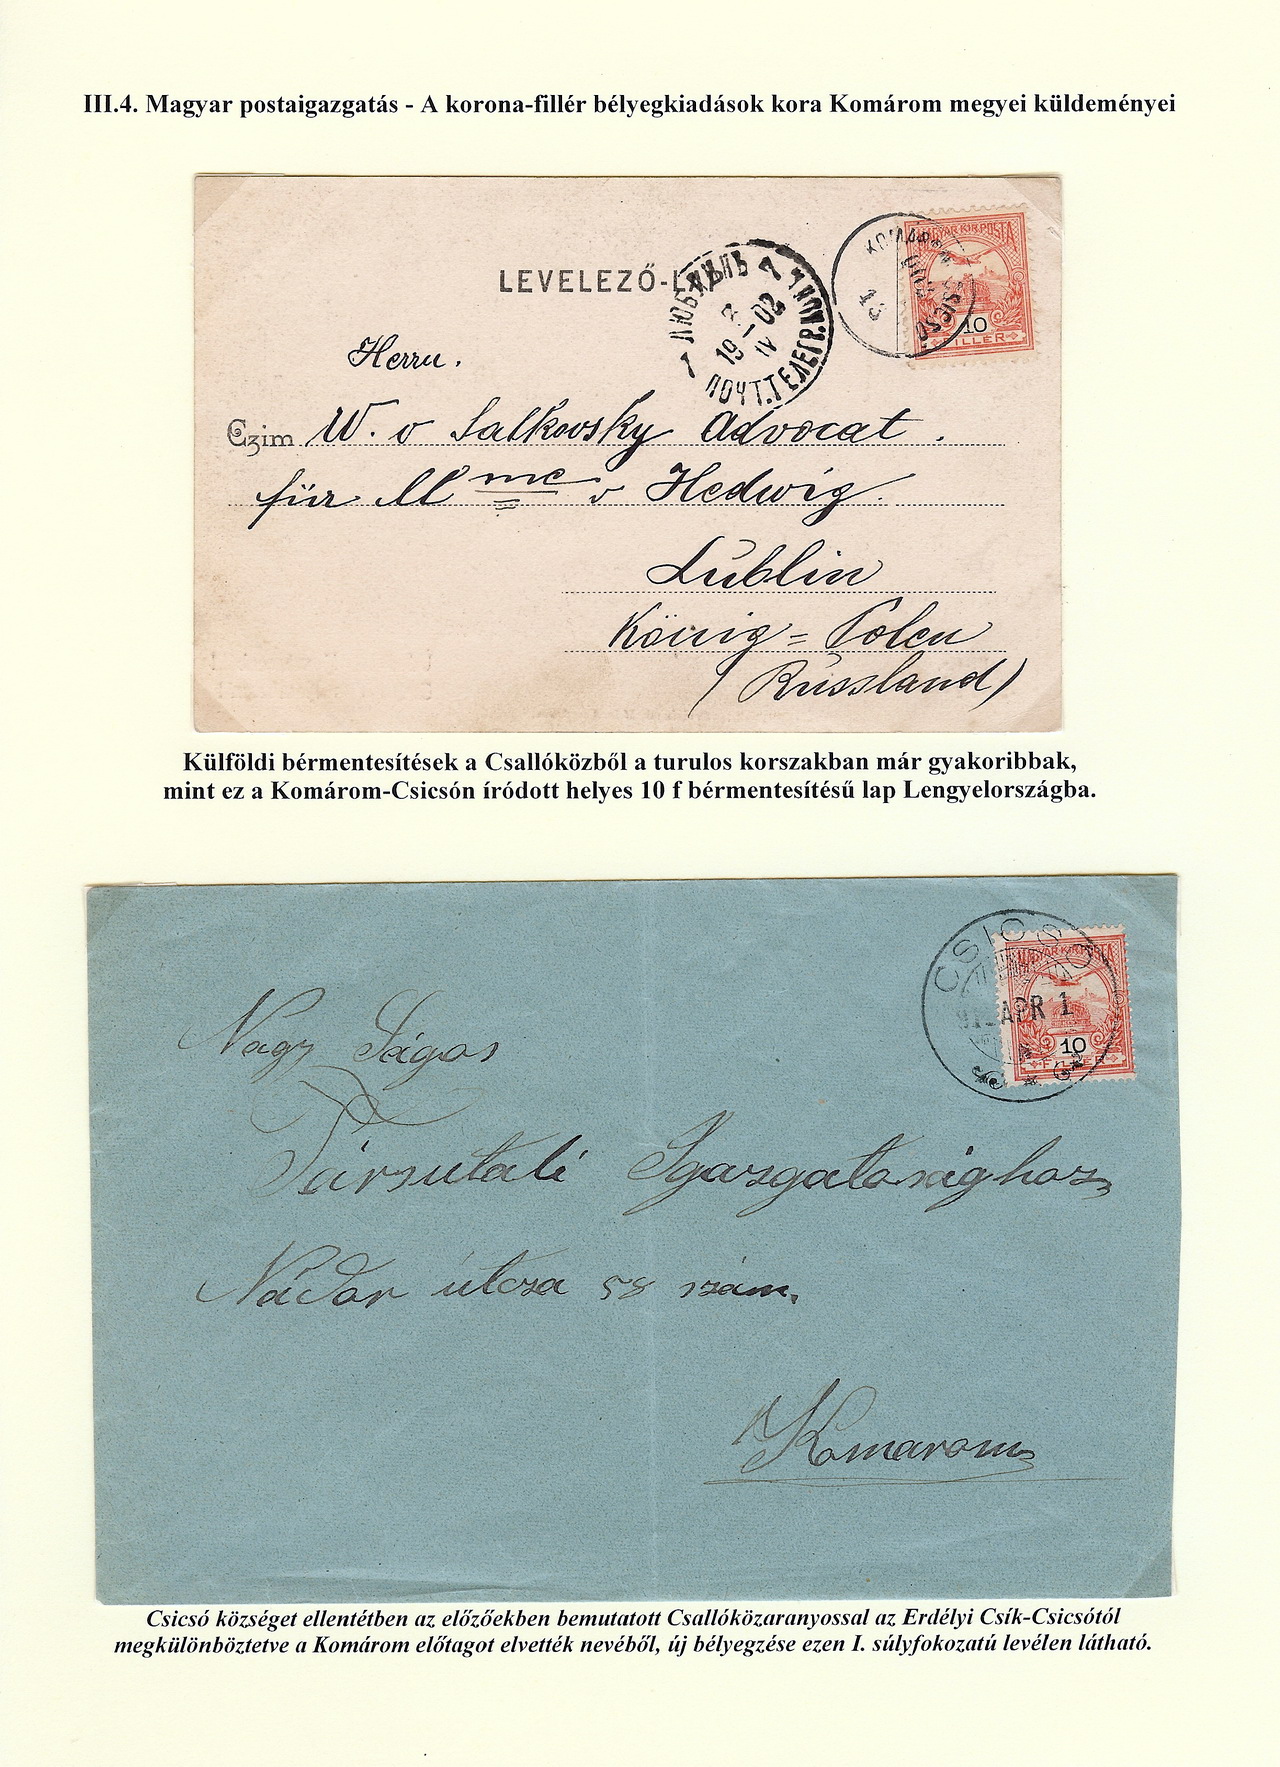 III.4. Magyar postaigazgatás - A korona-fillér bélyegkiadások kora Komárom megyei küldeményei
LEVELEZŐ-L
ЛЮБЛИНЪ
19 02
IV
ПОЧТ.ТЕЛЕГР.КОН
KOMÁROM
CSICSÓ
MAGYAR KIR. POSTA
10
FILLÉR
Herrn.
Czim W. v Salkovsky Advocat.
für Mme v Hedwig.
Lublin
König=Polen
(Russland)
Külföldi bérmentesítések a Csallóközből a turulos korszakban már gyakoribbak,
mint ez a Komárom-Csicsón íródott helyes 10 f bérmentesítésű lap Lengyelországba.
CSICSÓ
APR 1
MAGYAR KIR. POSTA
10
FILLÉR
Nagy Ságos
Társulati Igazgatosághoz
Nádor útcza 58 szám.
Komarom
Csicsó községet ellentétben az előzőekben bemutatott Csallóközaranyossal az Erdélyi Csík-Csicsótól
megkülönböztetve a Komárom előtagot elvették nevéből, új bélyegzése ezen I. súlyfokozatú levélen látható.